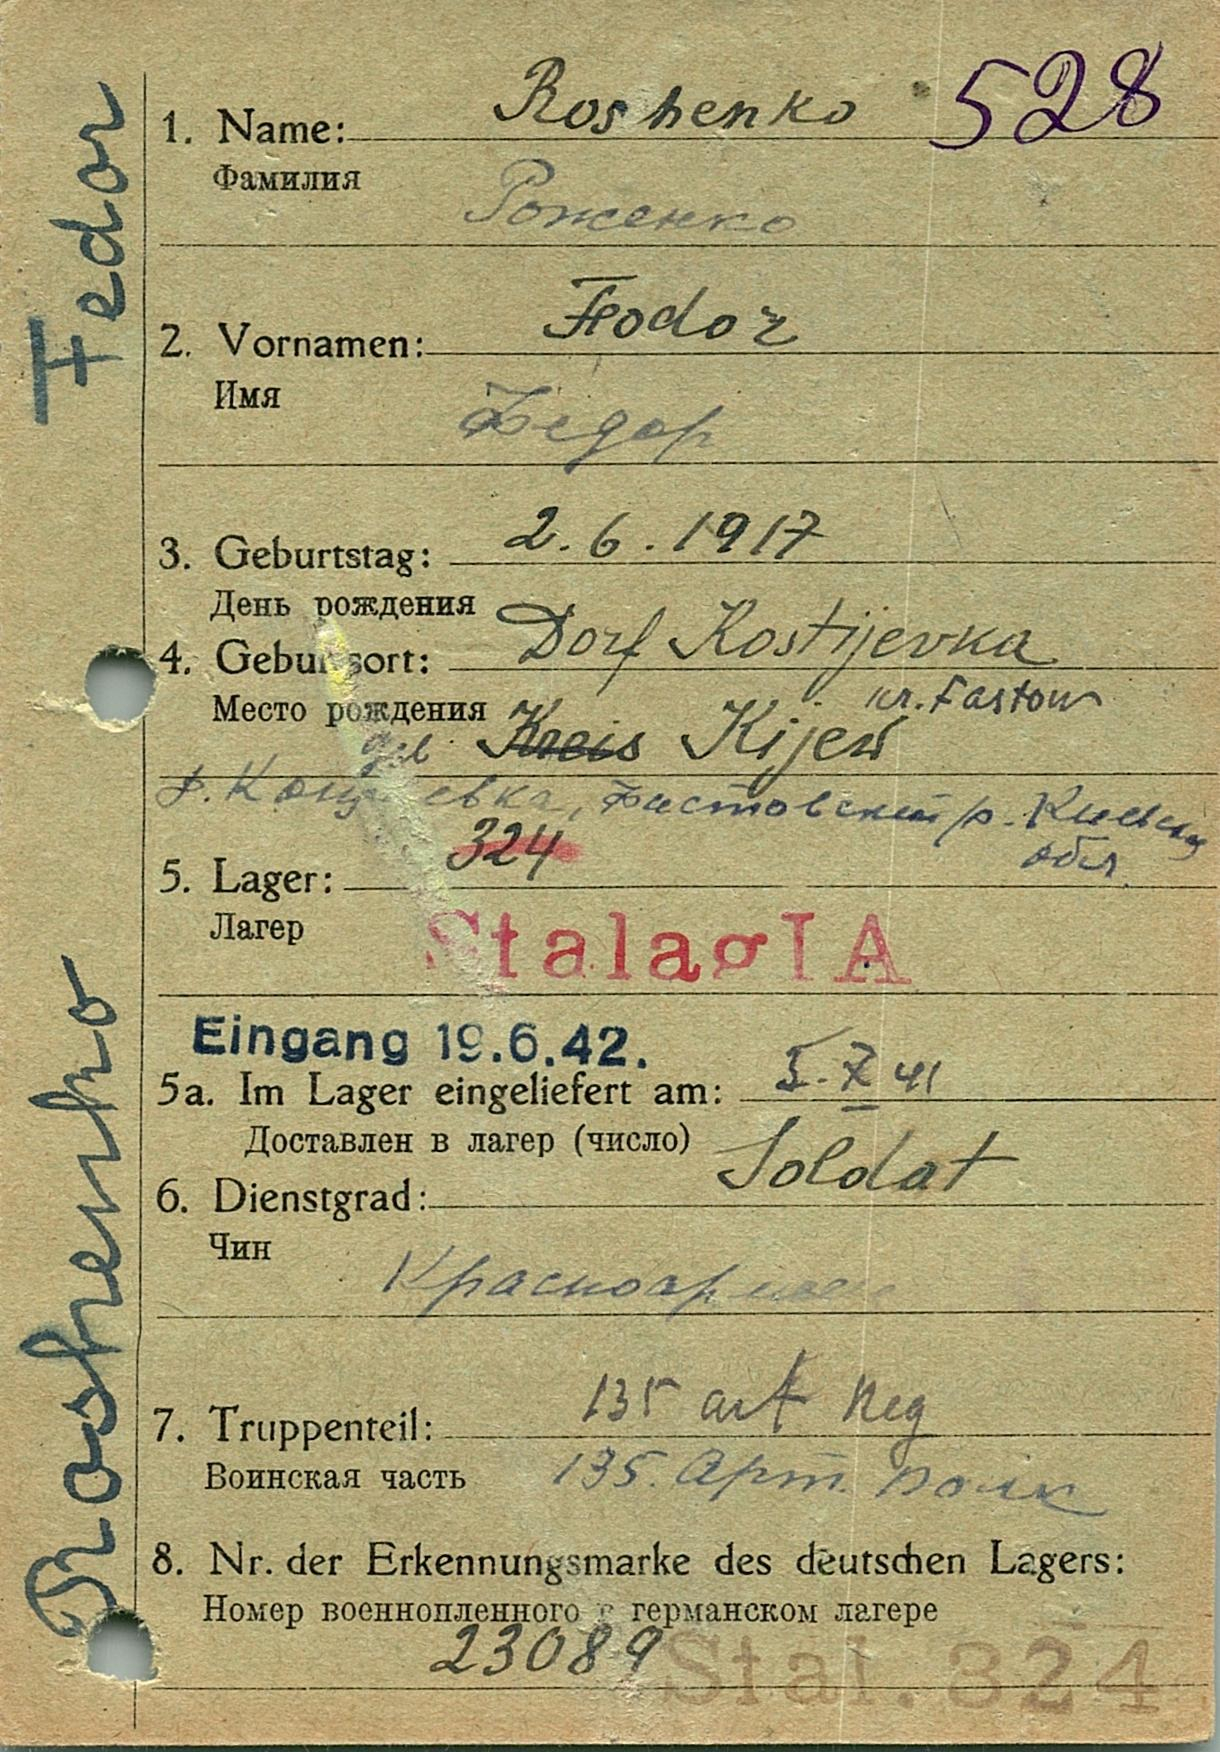 Roshenko 528
1. Name:
Фамилия
Роженко
Feodor
2. Vornamen:
Имя
Федор
2.6.1917
3. Geburtstag:
День рождения
Dorf Kostijevka
4. Geburtsort:
Место рождения
кr. Fastow
geb Kreis Kijew
Фастовский р. Киевск
обл
324
5. Lager:
Лагер
Stalag IA
Eingang 19.6.42.
5a. Im Lager eingeliefert am:
41
Доставлен в лагер (число)
Soldat
6. Dienstgrad:
Чин
Красноармеец
135 art Reg
7. Truppenteil:
Воинская часть
135. Арт. полк
8. Nr. der Erkennungsmarke des deutschen Lagers:
Номер военнопленного в германском лагере
23089
Stal. 324
Roshenko Fedor